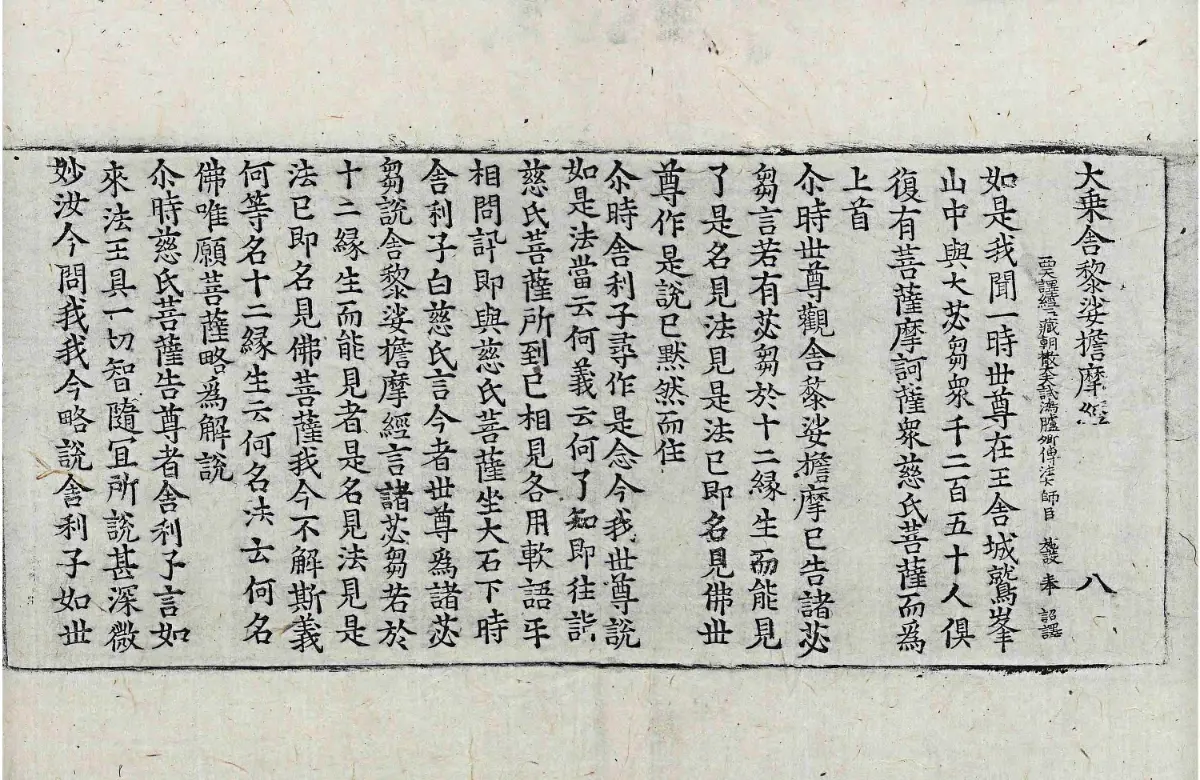 大乗舎黎娑擔摩經
八
西天譯經三藏朝散大夫試鴻臚少卿傳法大師臣 施護 奉 詔譯
如是我聞一時世尊在王舍城鷲峯
山中與大苾芻衆千二百五十人俱
復有菩薩摩訶薩衆慈氏菩薩而爲
上首
尒時世尊觀舍黎娑擔摩已告諸苾
芻言若有苾芻於十二縁生而能見
了是名見法見是法已即名見佛世
尊作是說已黙然而住
尒時舍利子尋作是念今我世尊說
如是法當云何義云何了知即往詣
慈氏菩薩所到已相見各用軟語平
相問訊即與慈氏菩薩坐大石下時
舍利子白慈氏言今者世尊爲諸苾
芻說舍黎娑擔摩經言諸苾芻若於
十二縁生而能見者是名見法見是
法已即名見佛菩薩我今不解斯義
何等名十二縁生云何名法云何名
佛唯願菩薩略爲解說
尒時慈氏菩薩告尊者舍利子言如
來法王具一切智隨冝所說甚深微
妙汝今問我我今略說舍利子如世